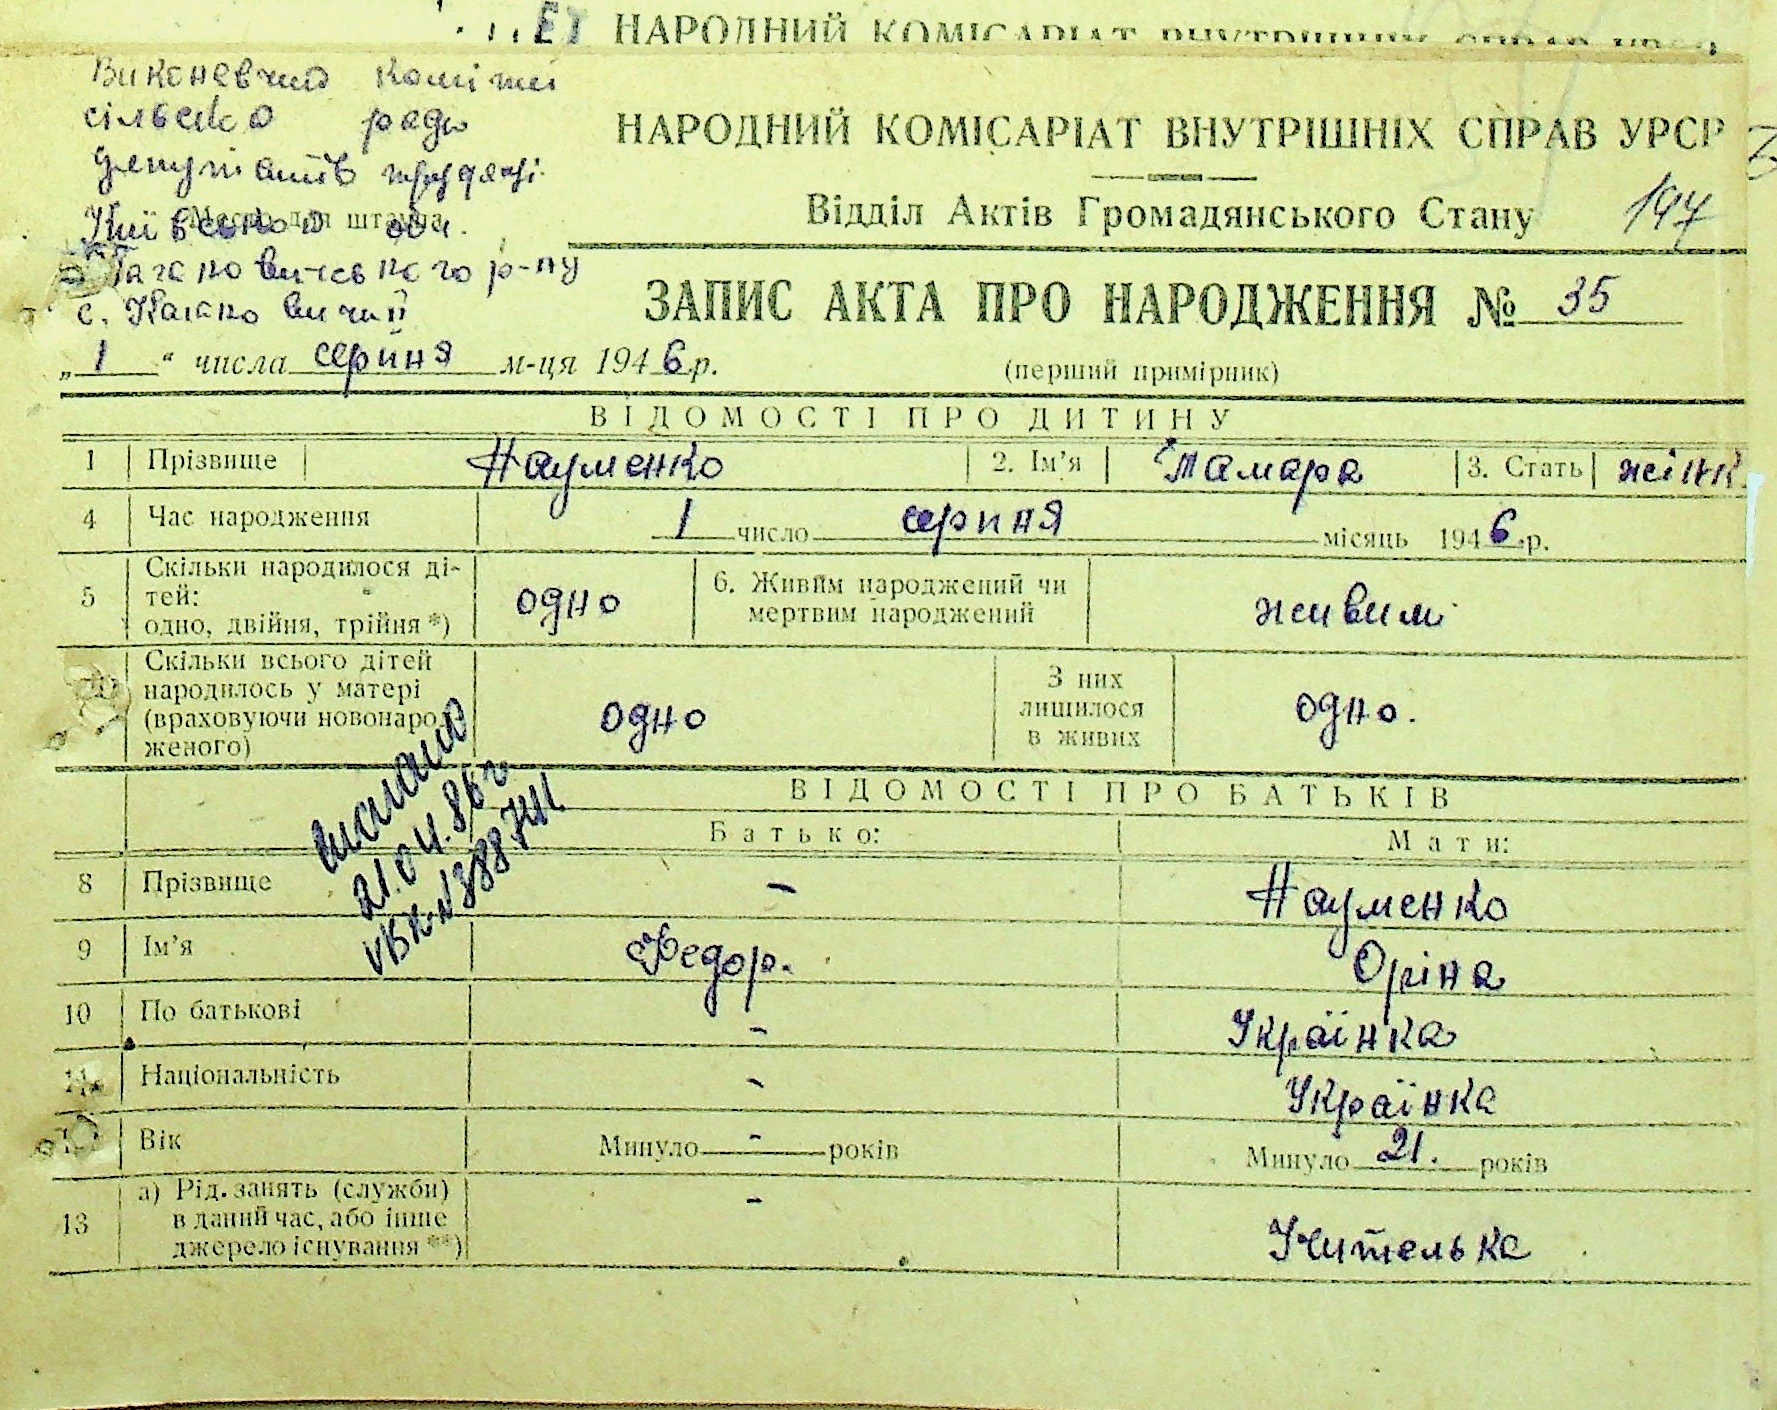 НАРОДНИЙ КОМІСАРІАТ ВНУТРІШНІХ СПРАВ УРСР
Виконавчий комітет
сільсько ради
депутатів трудящі
Місце для штампа
Київської обл.
Кагановичського р-ну
с. Кагановичі ІІ
НАРОДНИЙ КОМІСАРІАТ ВНУТРІШНІХ СПРАВ УРСР
Відділ Актів Громадянського Стану 197
ЗАПИС АКТА ПРО НАРОДЖЕННЯ № 35
„ 1 “ числа серпня м-ця 1946 р. (перший примірник)
ВІДОМОСТІ ПРО ДИТИНУ
1 Прізвище Науменко 2. Ім’я Тамара 3. Стать жінк.
4 Час народження 1 число серпня місяць 1946 р.
5 Скільки народилося ді-
тей:
одно, двійня, трійня*) одно 6. Живим народжений чи
мертвим народжений живим
Скільки всього дітей
народилось у матері
(враховуючи новонарод
женого) одно З них
лишилося
в живих одно.
ВІДОМОСТІ ПРО БАТЬКІВ
Батько: Мати:
21.04.86г.
8 Прізвище – Науменко
9 Ім’я Федор. Оріна
10 По батькові - Українка
11 Національність - Українка
Вік Минуло - років Минуло 21. років
13 а) Рід занять (служби)
в даний час, або інше
джерело існування **) - Учителька